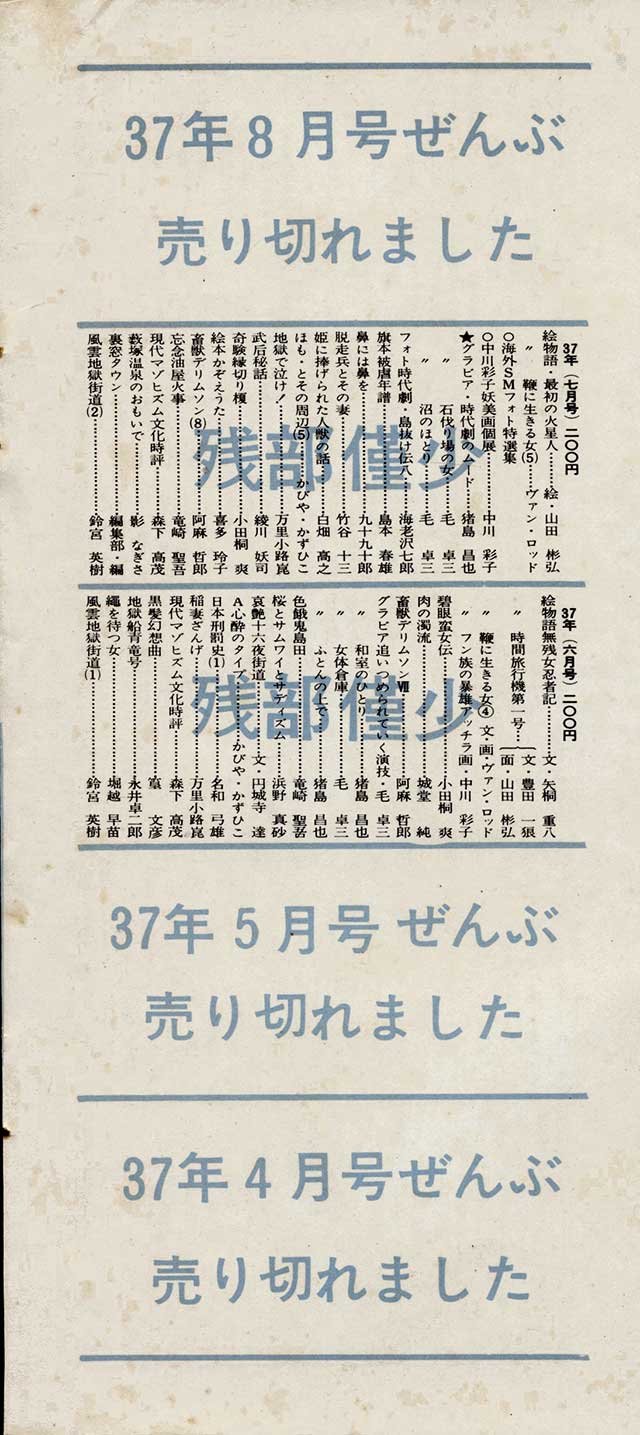 37年8月号ぜんぶ
売り切れました
37年(七月号)二〇〇円
絵物語・最初の火星人……絵・山田 彬弘
〃 鞭に生きる女(5)……ヴァン・ロッド
〇海外SMフォト特選集
〇中川彩子妖美画個展……中川 彩子
★グラビア・時代劇のムード……猪島 昌也
〃 石伐り場の女……毛 卓三
〃 沼のほとり……毛 卓三
フォト時代劇・島抜け伝八……海老沢七郎
旗本被虐年譜……島本 春雄
鼻には鼻を……九十九十郎
脱走兵とその妻……竹谷 十三
姫に捧げられた人獣の話……白畑 高之
ほも・とその周辺(5)……かびや・かずひこ
地獄で泣け!……万里小路崑
武后秘話……綾川 妖司
奇験縁切り榎……小田桐 爽
絵本かぞえうた……喜多 玲子
畜獣デリムソン(8)……阿麻 哲郎
忘念油屋火事……竜崎 聖吾
現代マゾヒズム文化時評……森下 高茂
藪塚温泉のおもいで……影 なぎさ
裏窓タウン……編集部・編
風雲地獄街道(2)……鈴宮 英樹
残部僅少
37年(六月号)二〇〇円
絵物語無残女忍者記……文・矢桐 重八
〃 時間旅行機第一号……{文・豊田 一狼
画・山田 彬弘
〃 鞭に生きる女④ 文・画・ヴァン・ロッド
〃 フン族の暴雄アッチラ 画・中川 彩子
碧眼蛮女伝……小田桐 爽
肉の濁流……城堂 純
畜獣デリムソンⅦ……阿麻 哲郎
グラビア追いつめられていく演技・毛 卓三
〃 和室のひとり……猪島 昌也
〃 女体倉庫……毛 卓三
〃 ふとんの上で……猪島 昌也
色餓鬼島田……竜崎 聖吾
桜とサムワイとサディズム……浜野 真砂
哀艶十六夜街道……文・円城寺 達
A心酔のタイプ……かびや・かずひこ
日本刑罰史(1)……名和 弓雄
稲妻ざんげ……万里小路崑
現代マゾヒズム文化時評……森下 高茂
黒髪幻想曲……篁 文彦
地獄船青竜号……永井卓二郎
縄を待つ女……堀越 早苗
風雲地獄街道(1)……鈴宮 英樹
残部僅少
37年5月号ぜんぶ
売り切れました
37年4月号ぜんぶ
売り切れました